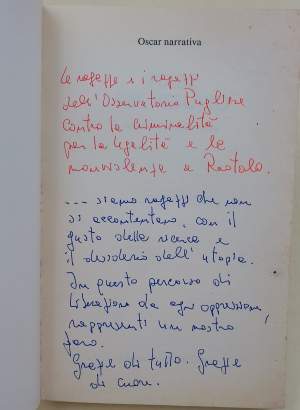 Oscar narrativa
Le ragazze e i ragazzi
dell'Osservatorio Pugliese
contro la criminalità
per la legalità e la
nonviolenza a Raffaele.
... siamo ragazzi che non
si accontentano, con il
gusto della ricerca e
il desiderio dell'utopia.
In questo percorso di
liberazione da ogni oppressione,
rappresenti un nostro
faro.
Grazie di tutto. Grazie
di cuore.